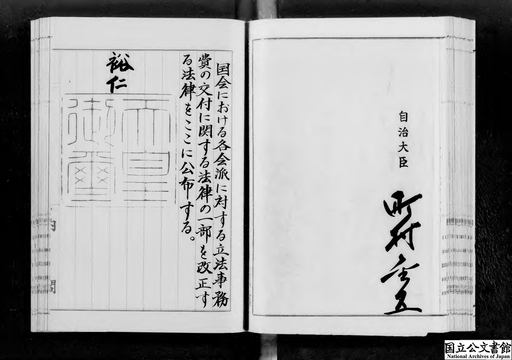 自治大臣
町村金五
国会における各会派に対する立法事務
費の交付に関する法律の一部を改正す
る法律をここに公布する。
裕仁
天皇
御璽
内閣
国立公文書館
National Archives of Japan